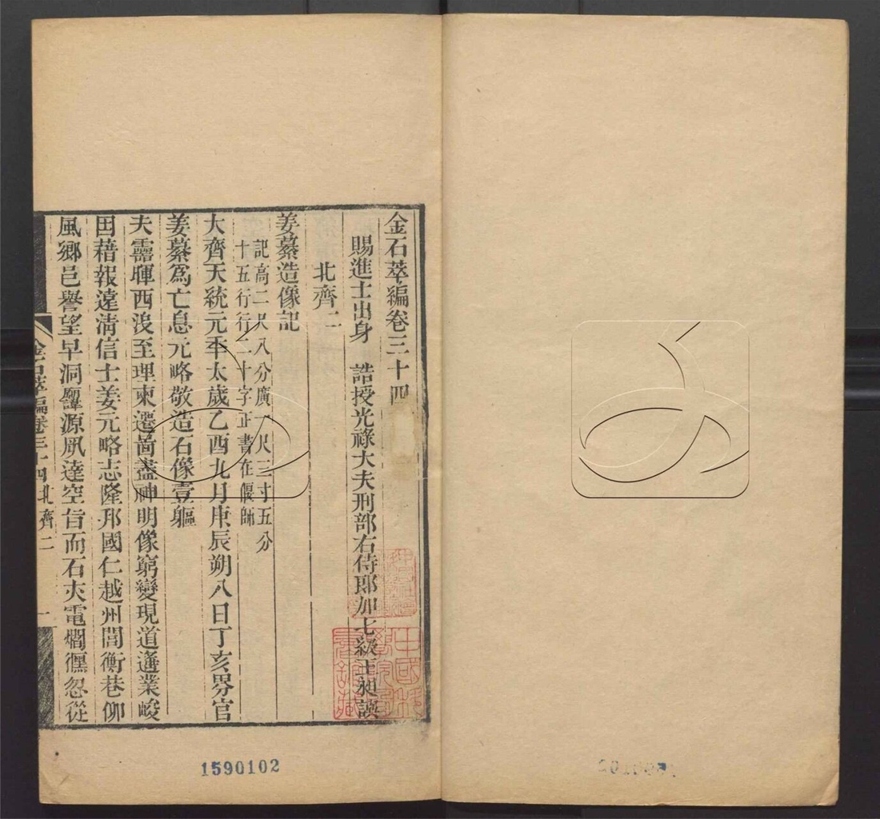 金石萃編卷三十四
賜進士出身 誥授光祿大夫刑部右侍郎加七級王昶譔
北齊二
姜纂造像記
記高二尺八分廣一尺三寸五分
十五行行二十字正書在偃師
大齊天統元年太歲乙酉九月庚辰朔八日丁亥界官
姜纂爲亡息元略敬造石像壹軀
夫靈暉西沒至理東遷啚盡神明像窮變現道邃業峻
田藉報遠清信士姜元略志隆邦國仁越州閭衡巷仰
風鄉邑譽望早洞靈源夙達空旨而石火電爓㒟忽從
金石萃編卷三十四北齊二 一
1590102